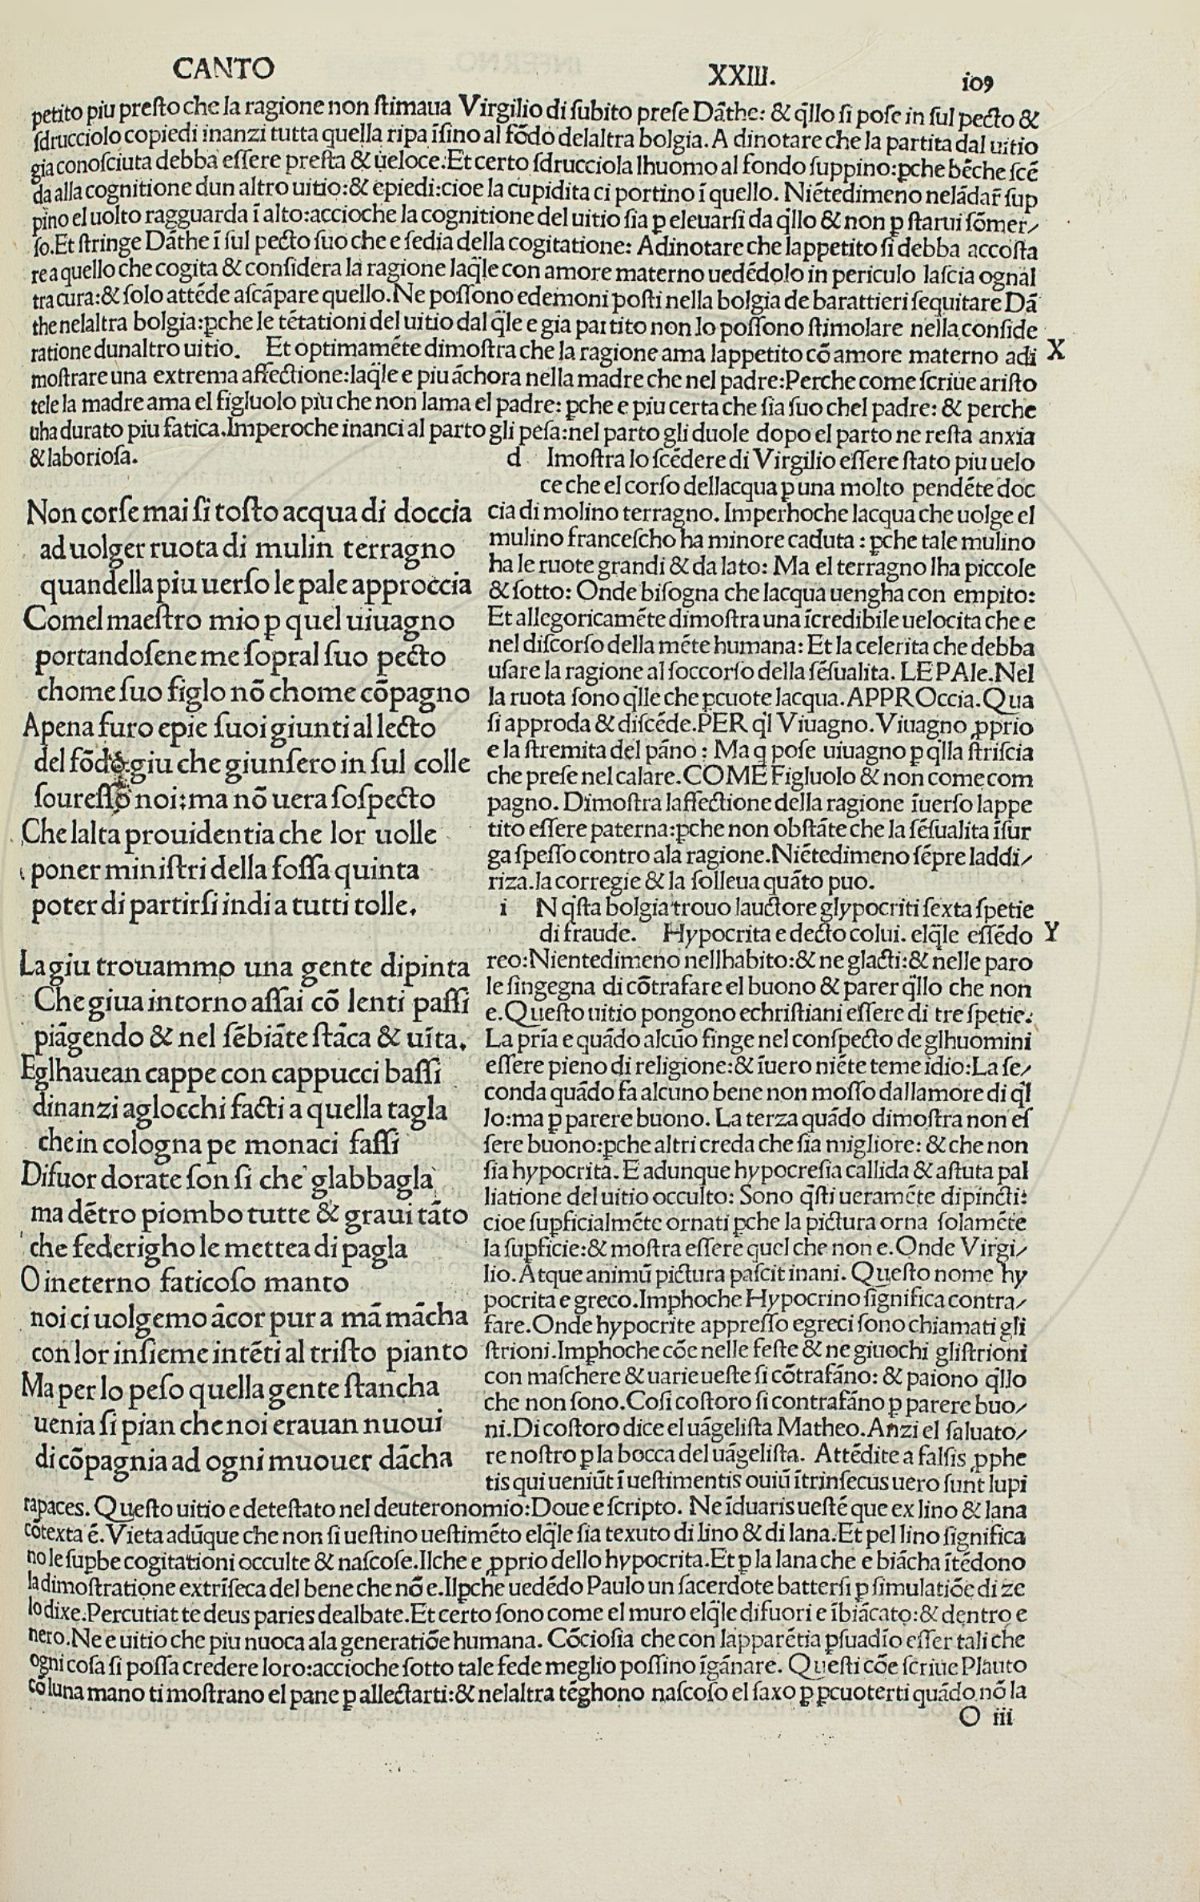 CANTO XXIII. 109
petito piu preſto che la ragione non ſtimaua Virgilio di ſubito preſe Dãthe: & q̃llo ſi poſe in ſul pecto &
ſdrucciolo copiedi inanzi tutta quella ripa ĩſino al fõdo delaltra bolgia. A dinotare che la partita dal uitio
gia conoſciuta debba eſſere preſta & ueloce. Et certo ſdrucciola lhuomo al fondo ſuppino: ꝑche bẽche ſcẽ
da alla cognitione dun altro uitio: & epiedi: cioe la cupidita ci portino ĩ quello. Niẽtedimeno nelãdar̃ ſup
pino el uolto ragguarda ĩ alto: accioche la cognitione del uitio ſia ꝑ eleuarſi da q̃llo & non ꝑ ſtarui ſõmer/
ſo. Et ſtringe Dãthe ĩ ſul pecto ſuo che e ſedia della cogitatione: Adinotare che lappetito ſi debba accoſta
re a quello che cogita & conſidera la ragione laq̃le con amore materno uedẽdolo in periculo laſcia ognal
tra cura: & ſolo attẽde aſcãpare quello. Ne poſſono edemoni poſti nella bolgia de barattieri ſequitare Dã
the nelaltra bolgia: ꝑche le tẽtationi del uitio dal q̃le e gia partito non lo poſſono ſtimolare nella conſide
ratione dunaltro uitio. Et optimamẽte dimoſtra che la ragione ama lappetito cõ amore materno adi X
moſtrare una extrema affectione: laq̃le e piu ãchora nella madre che nel padre: Perche come ſcriue ariſto
tele la madre ama el figluolo piu che non lama el padre: ꝑche e piu certa che ſia ſuo chel padre: & perche
uha durato piu fatica. Imperoche inanci al parto gli peſa: nel parto gli duole dopo el parto ne reſta anxia
& laborioſa.
Non corſe mai ſi toſto acqua di doccia
ad uolger ruota di mulin terragno
quandella piu uerſo le pale approccia
Comel maeſtro mio ꝑ quel uiuagno
portandoſene me ſopral ſuo pecto
chome ſuo figlo nõ chome cõpagno
Apena furo epie ſuoi giunti al lecto
del fõdo giu che giunſero in ſul colle
ſoureſſo noi: ma nõ uera ſoſpecto
Che lalta prouidentia che lor uolle
poner miniſtri della foſſa quinta
poter di partirſi indi a tutti tolle.
La giu trouammo una gente dipinta
Che giua intorno aſſai cõ lenti paſſi
piãgendo & nel ſẽbiãte ſtãca & uĩta.
Eglhauean cappe con cappucci baſſi
dinanzi aglocchi facti a quella tagla
che in cologna pe monaci faſſi
Difuor dorate ſon ſi che glabbagla
ma dẽtro piombo tutte & graui tãto
che federigho le mettea di pagla
O in eterno faticoſo manto
noi ci uolgemo ãcor pur a mã mãcha
con lor inſieme intẽti al triſto pianto
Ma per lo peſo quella gente ſtancha
uenia ſi pian che noi erauan nuoui
di cõpagnia ad ogni muouer dãcha
d Imoſtra lo ſcẽdere di Virgilio eſſere ſtato piu uelo
ce che el corſo dellacqua ꝑ una molto pendẽte doc
cia di molino terragno. Imperhoche lacqua che uolge el
mulino franceſcho ha minore caduta: ꝑche tale mulino
ha le ruote grandi & da lato: Ma el terragno lha piccole
& ſotto: Onde biſogna che lacqua uengha con empito:
Et allegoricamẽte dimoſtra una ĩcredibile uelocita che e
nel diſcorſo della mẽte humana: Et la celerita che debba
uſare la ragione al ſoccorſo della ſẽſualita. LE PAle. Nel
la ruota ſono q̃lle che ꝑcuote lacqua. APPROccia. Qua
ſi approda & diſcẽde. PER q̃l Viuagno. Viuagno ꝓprio
e la ſtremita del pãno: Ma q̃ poſe uiuagno ꝑ q̃lla ſtriſcia
che preſe nel calare. COME Figluolo & non come com
pagno. Dimoſtra laffectione della ragione ĩuerſo lappe
tito eſſere paterna: ꝑche non obſtãte che la ſẽſualita ĩſur
ga ſpeſſo contro ala ragione. Niẽtedimeno ſẽpre laddi/
riza. la corregie & la ſolleua quãto puo.
i N q̃ſta bolgia trouo lauctore glypocriti ſexta ſpetie
di fraude. Hypocrita e decto colui. elq̃le eſſẽdo Y
reo: Nientedimeno nellhabito: & ne glacti: & nelle paro
le ſingegna di cõtrafare el buono & parer q̃llo che non
e. Queſto uitio pongono echriſtiani eſſere di tre ſpetie.
La prĩa e quãdo alcũo finge nel conſpecto de glhuomini
eſſere pieno di religione: & ĩuero niẽte teme idio: La ſe/
conda quãdo fa alcuno bene non moſſo dallamore di q̃l
lo: ma ꝑ parere buono. La terza quãdo dimoſtra non eſ
ſere buono: ꝑche altri creda che ſia migliore: & che non
ſia hypocrita. E adunque hypocreſia callida & aſtuta pal
liatione del uitio occulto: Sono q̃ſti ueramẽte dipincti:
cioe ſuꝑficialmẽte ornati ꝑche la pictura orna ſolamẽte
la ſuꝑficie: & moſtra eſſere quel che non e. Onde Virgi/
lio. Atque animũ pictura paſcit inani. Queſto nome hy
pocrita e greco. Imꝑhoche Hypocrino ſignifica contra/
fare. Onde hypocrite appreſſo egreci ſono chiamati gli
ſtrioni. Imꝑhoche cõe nelle feſte & ne giuochi gliſtrioni
con maſchere & uarie ueſte ſi cõtrafãno: & paiono q̃llo
che non ſono. Coſi coſtoro ſi contrafãno ꝑ parere buo/
ni. Di coſtoro dice el uãgeliſta Matheo. Anzi el ſaluato/
re noſtro ꝑ la bocca del uãgeliſta. Attẽdite a falſis ꝓphe
tis qui ueniũt ĩ ueſtimentis ouiũ ĩtrinſecus uero ſunt lupi
rapaces. Queſto uitio e deteſtato nel deuteronomio: Doue e ſcripto. Ne ĩduaris ueſtẽ que ex lino & lana
cõtexta ẽ. Vieta adũque che non ſi ueſtino ueſtimẽto elq̃le ſia texuto di lino & di lana. Et pel lino ſignifica
no le ſuꝑbe cogitationi occulte & naſcoſe. Ilche e ꝓprio dello hypocrita. Et ꝑ la lana che e biãcha ĩtẽdono
la dimoſtratione extrĩſeca del bene che nõ e. Ilꝑche uedẽdo Paulo un ſacerdote batterſi ꝑ ſimulatiõe di ze
lo dixe. Percutiat te deus paries dealbate. Et certo ſono come el muro elq̃le difuori e ĩbiãcato: & dentro e
nero. Ne e uitio che piu nuoca ala generatiõe humana. Cõcioſia che con lapparẽtia ꝑſuadĩo eſſer tali che
ogni coſa ſi poſſa credere loro: accioche ſotto tale fede meglio poſſino ĩgãnare. Queſti cõe ſcriue Plauto
cõ luna mano ti moſtrano el pane ꝑ allectarti: & nelaltra tẽghono naſcoſo el ſaxo ꝑ ꝑcuoterti quãdo nõ la
O iii